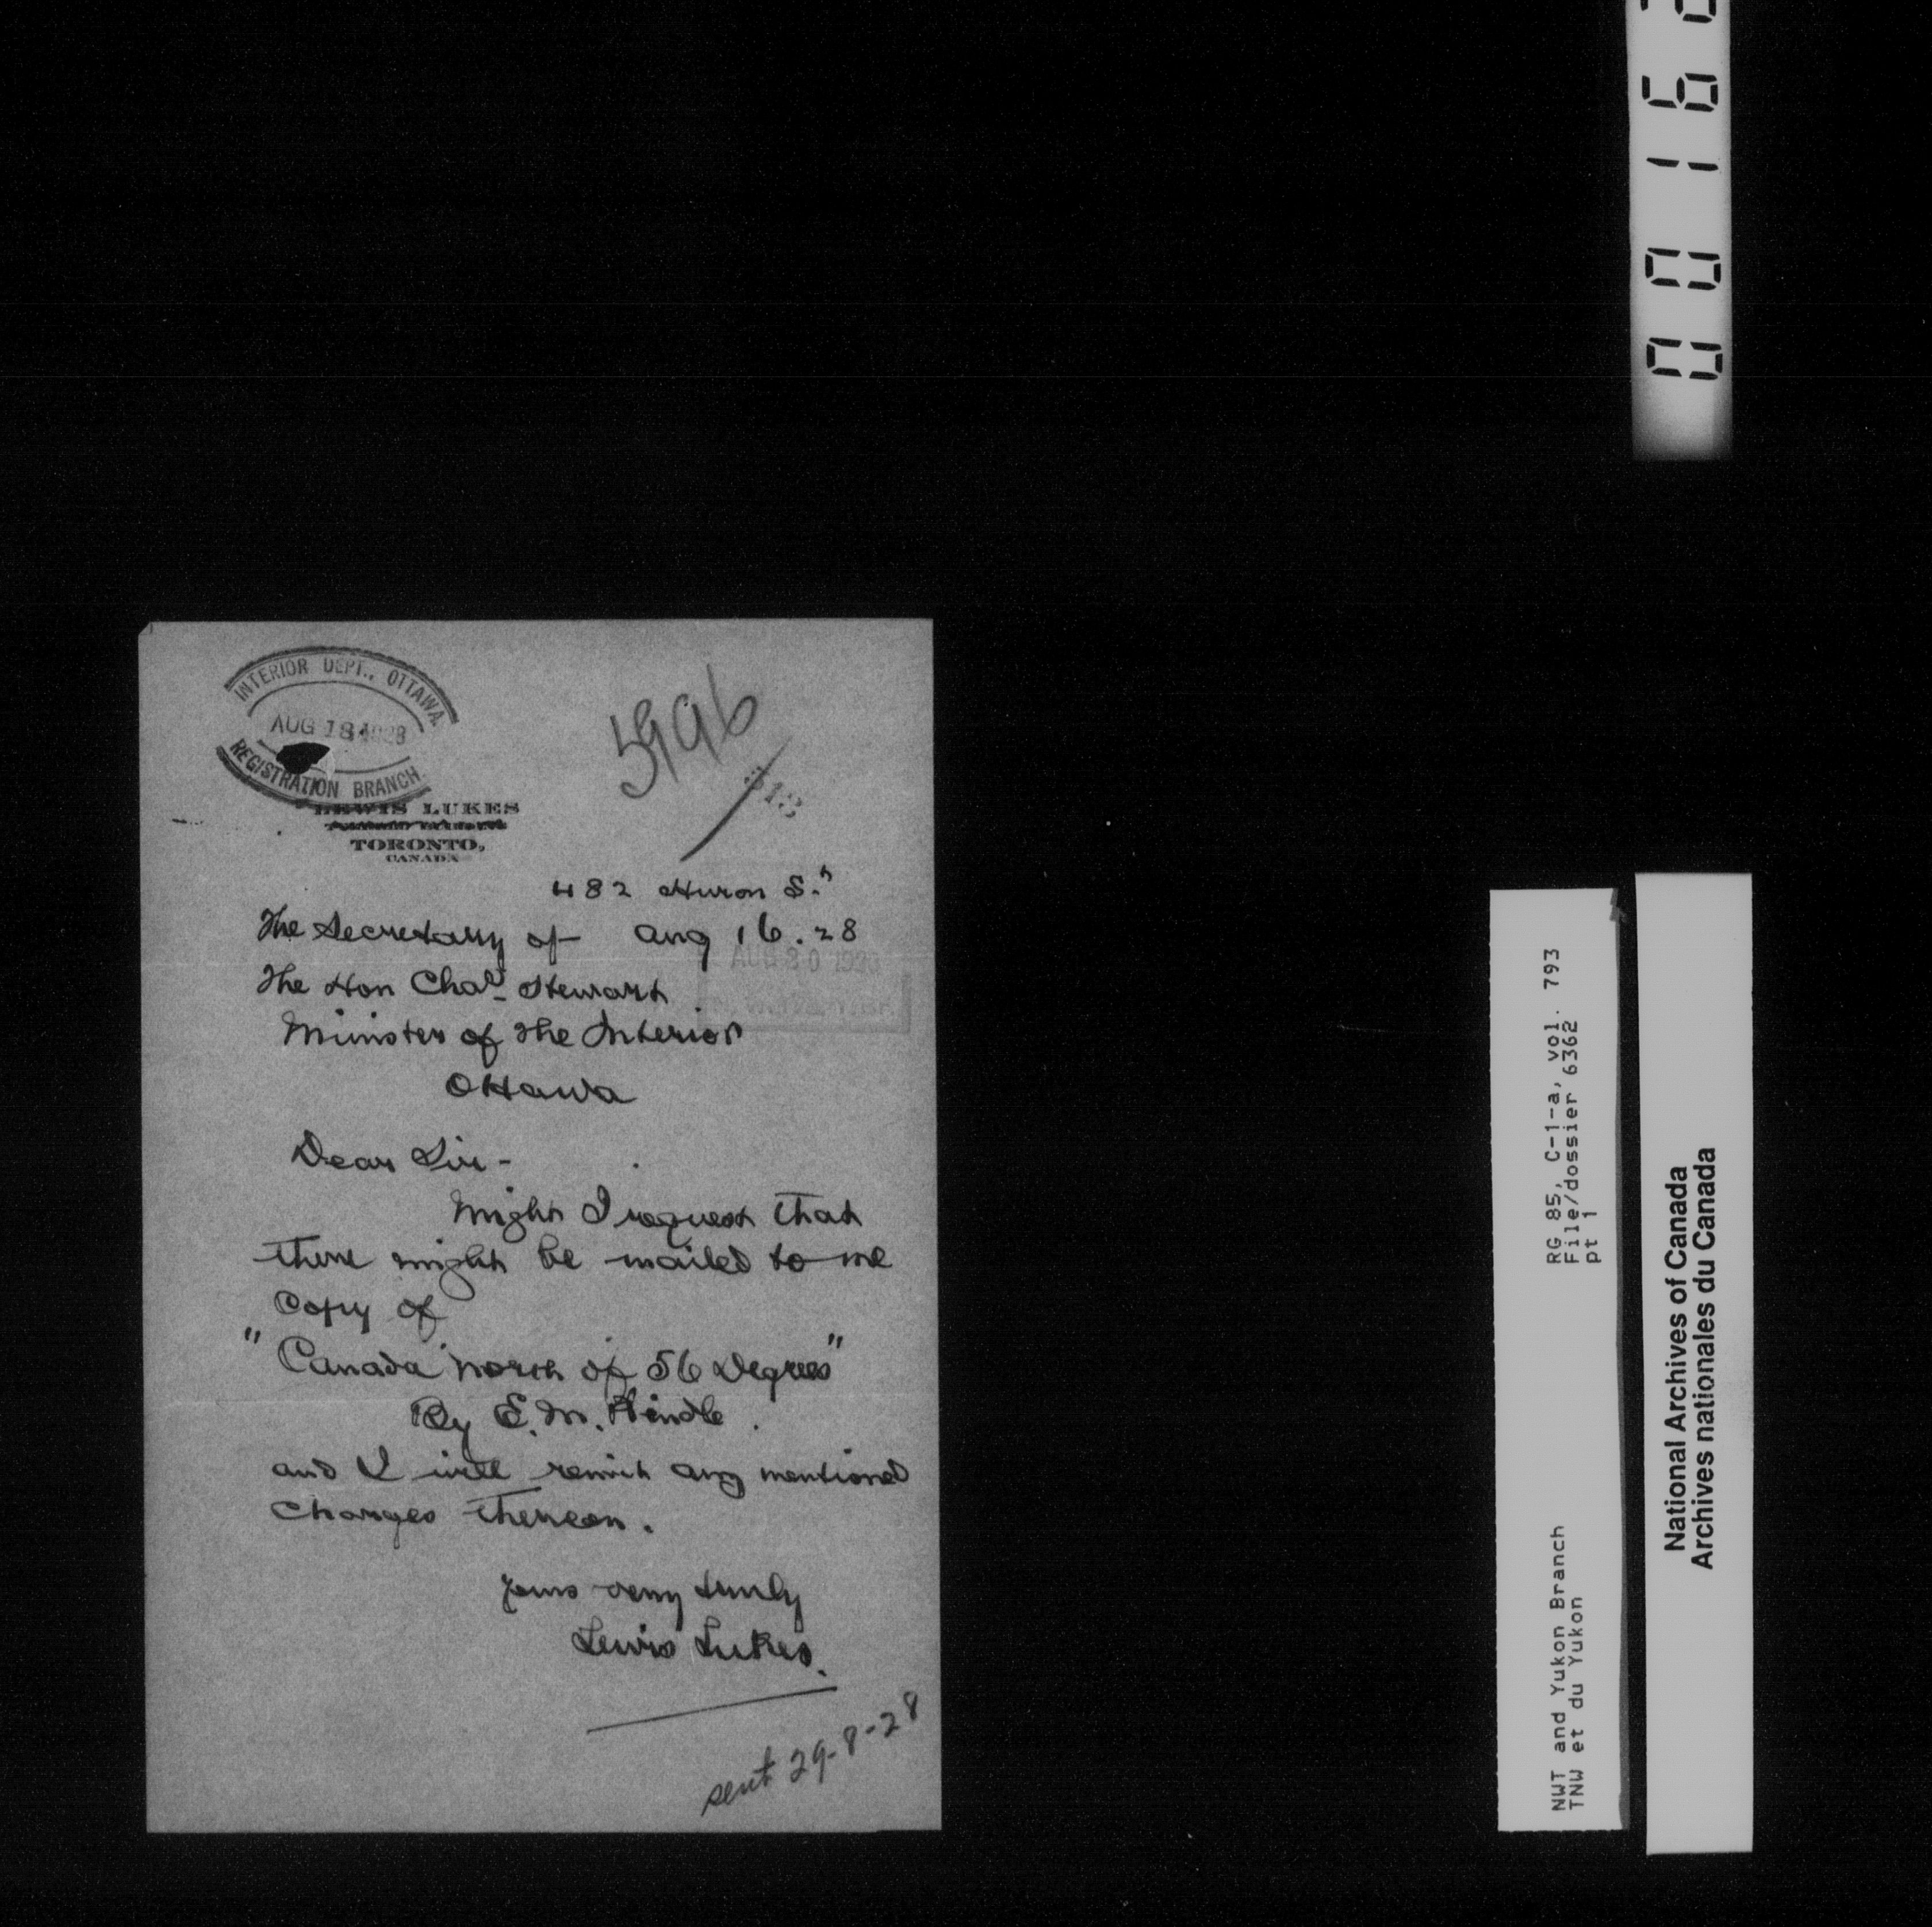 INTERIOR DEPT., OTTAWA.
AUG 18 1928
REGISTRATION BRANCH.
5996
LEWIS LUKES
TORONTO,
CANADA
482 Huron St
The Secretary of Aug 16.28
AUG 20 1928
The Hon Chas Stewart
Minister of the Interior
Ottawa
Dear Sir -
Might I request that
there might be mailed to me
copy of
"Canada north of 56 Degrees"
By E. M. Kindle.
and I will remit any mentioned
charges thereon.
Yours very truly
Lewis Lukes.
sent 29-8-28
RG 85, C-1-a, vol. 793
File/dossier 6362
pt 1
NWT and Yukon Branch
TNW et du Yukon
National Archives of Canada
Archives nationales du Canada